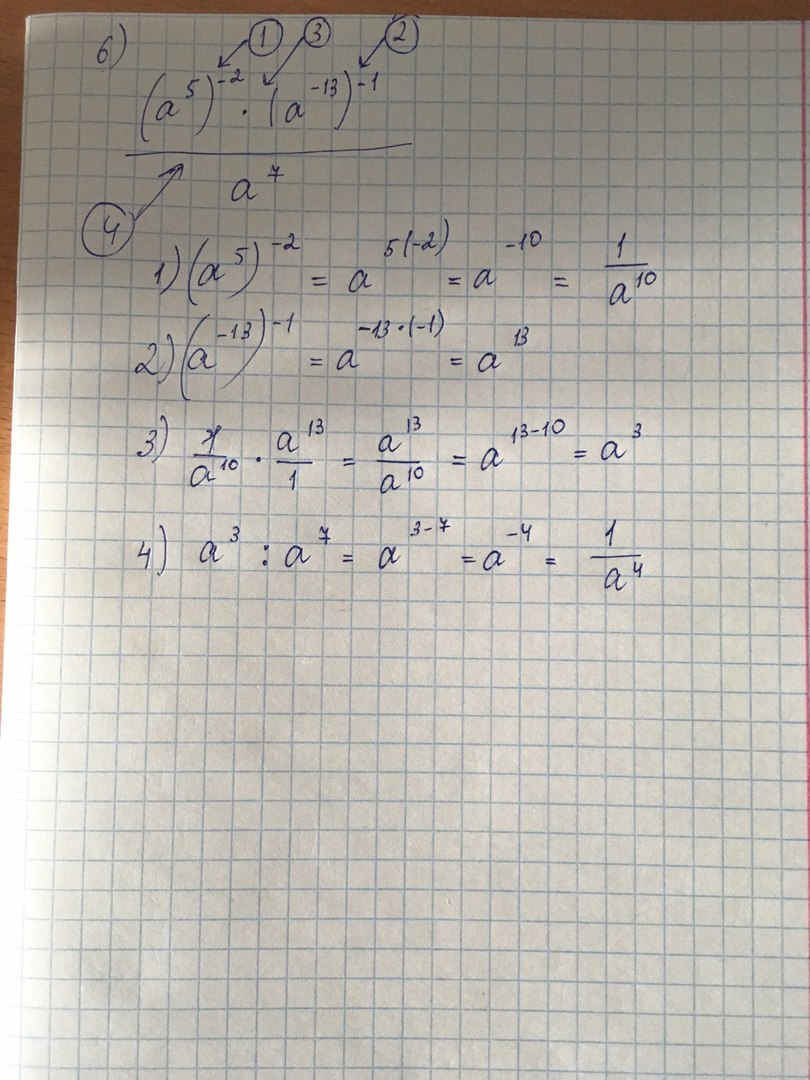 6) ① ③ ②
(a⁵)⁻² · (a⁻¹³)⁻¹
a⁷
④
1) (a⁵)⁻² = a⁵⁽⁻²⁾ = a⁻¹⁰ = 1/a¹⁰
2) (a⁻¹³)⁻¹ = a⁻¹³·⁽⁻¹⁾ = a¹³
3) 1/a¹⁰ · a¹³/1 = a¹³/a¹⁰ = a¹³⁻¹⁰ = a³
4) a³ : a⁷ = a³⁻⁷ = a⁻⁴ = 1/a⁴